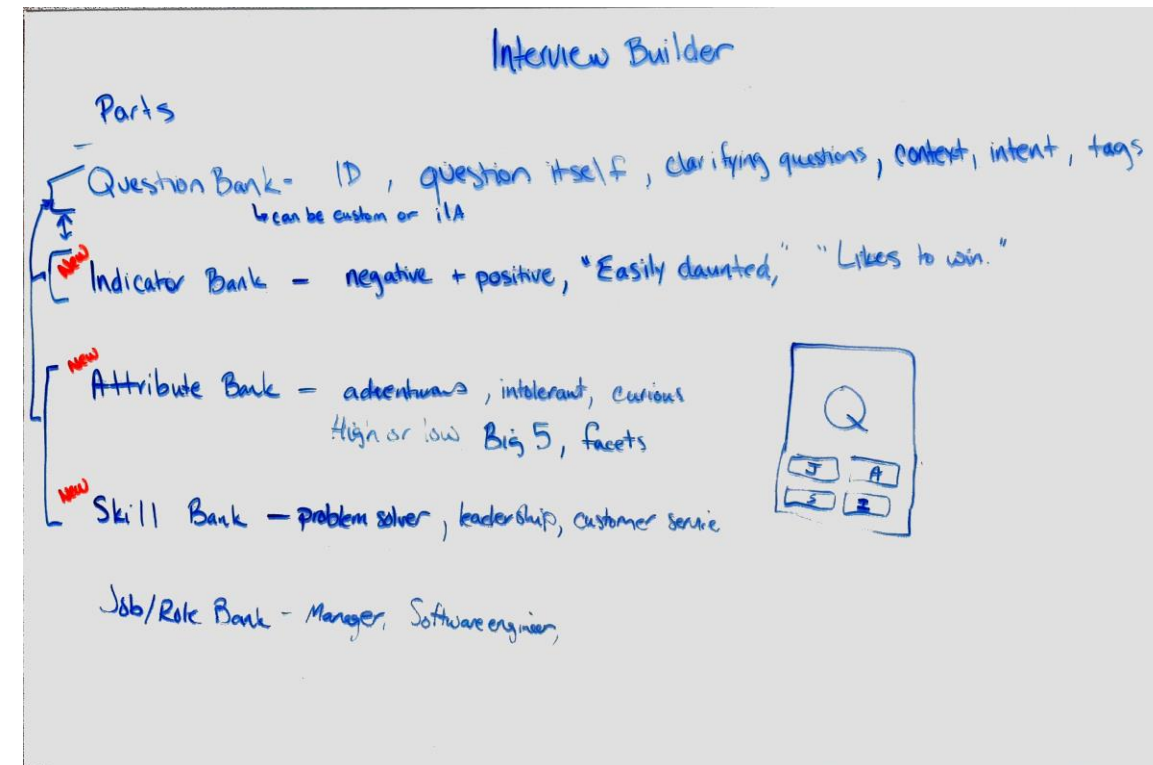 Interview Builder
Parts
Question Bank - ID, question itself, clarifying questions, context, intent, tags
↳ can be custom or
NEW
Indicator Bank - negative + positive, "Easily daunted," "Likes to win."
NEW
Attribute Bank - adventurous, intolerant, curious
High or low Big 5, facets
Q
J A
S I
NEW
Skill Bank - problem solver, leadership, customer service
Job/Role Bank - Manager, Software engineer,